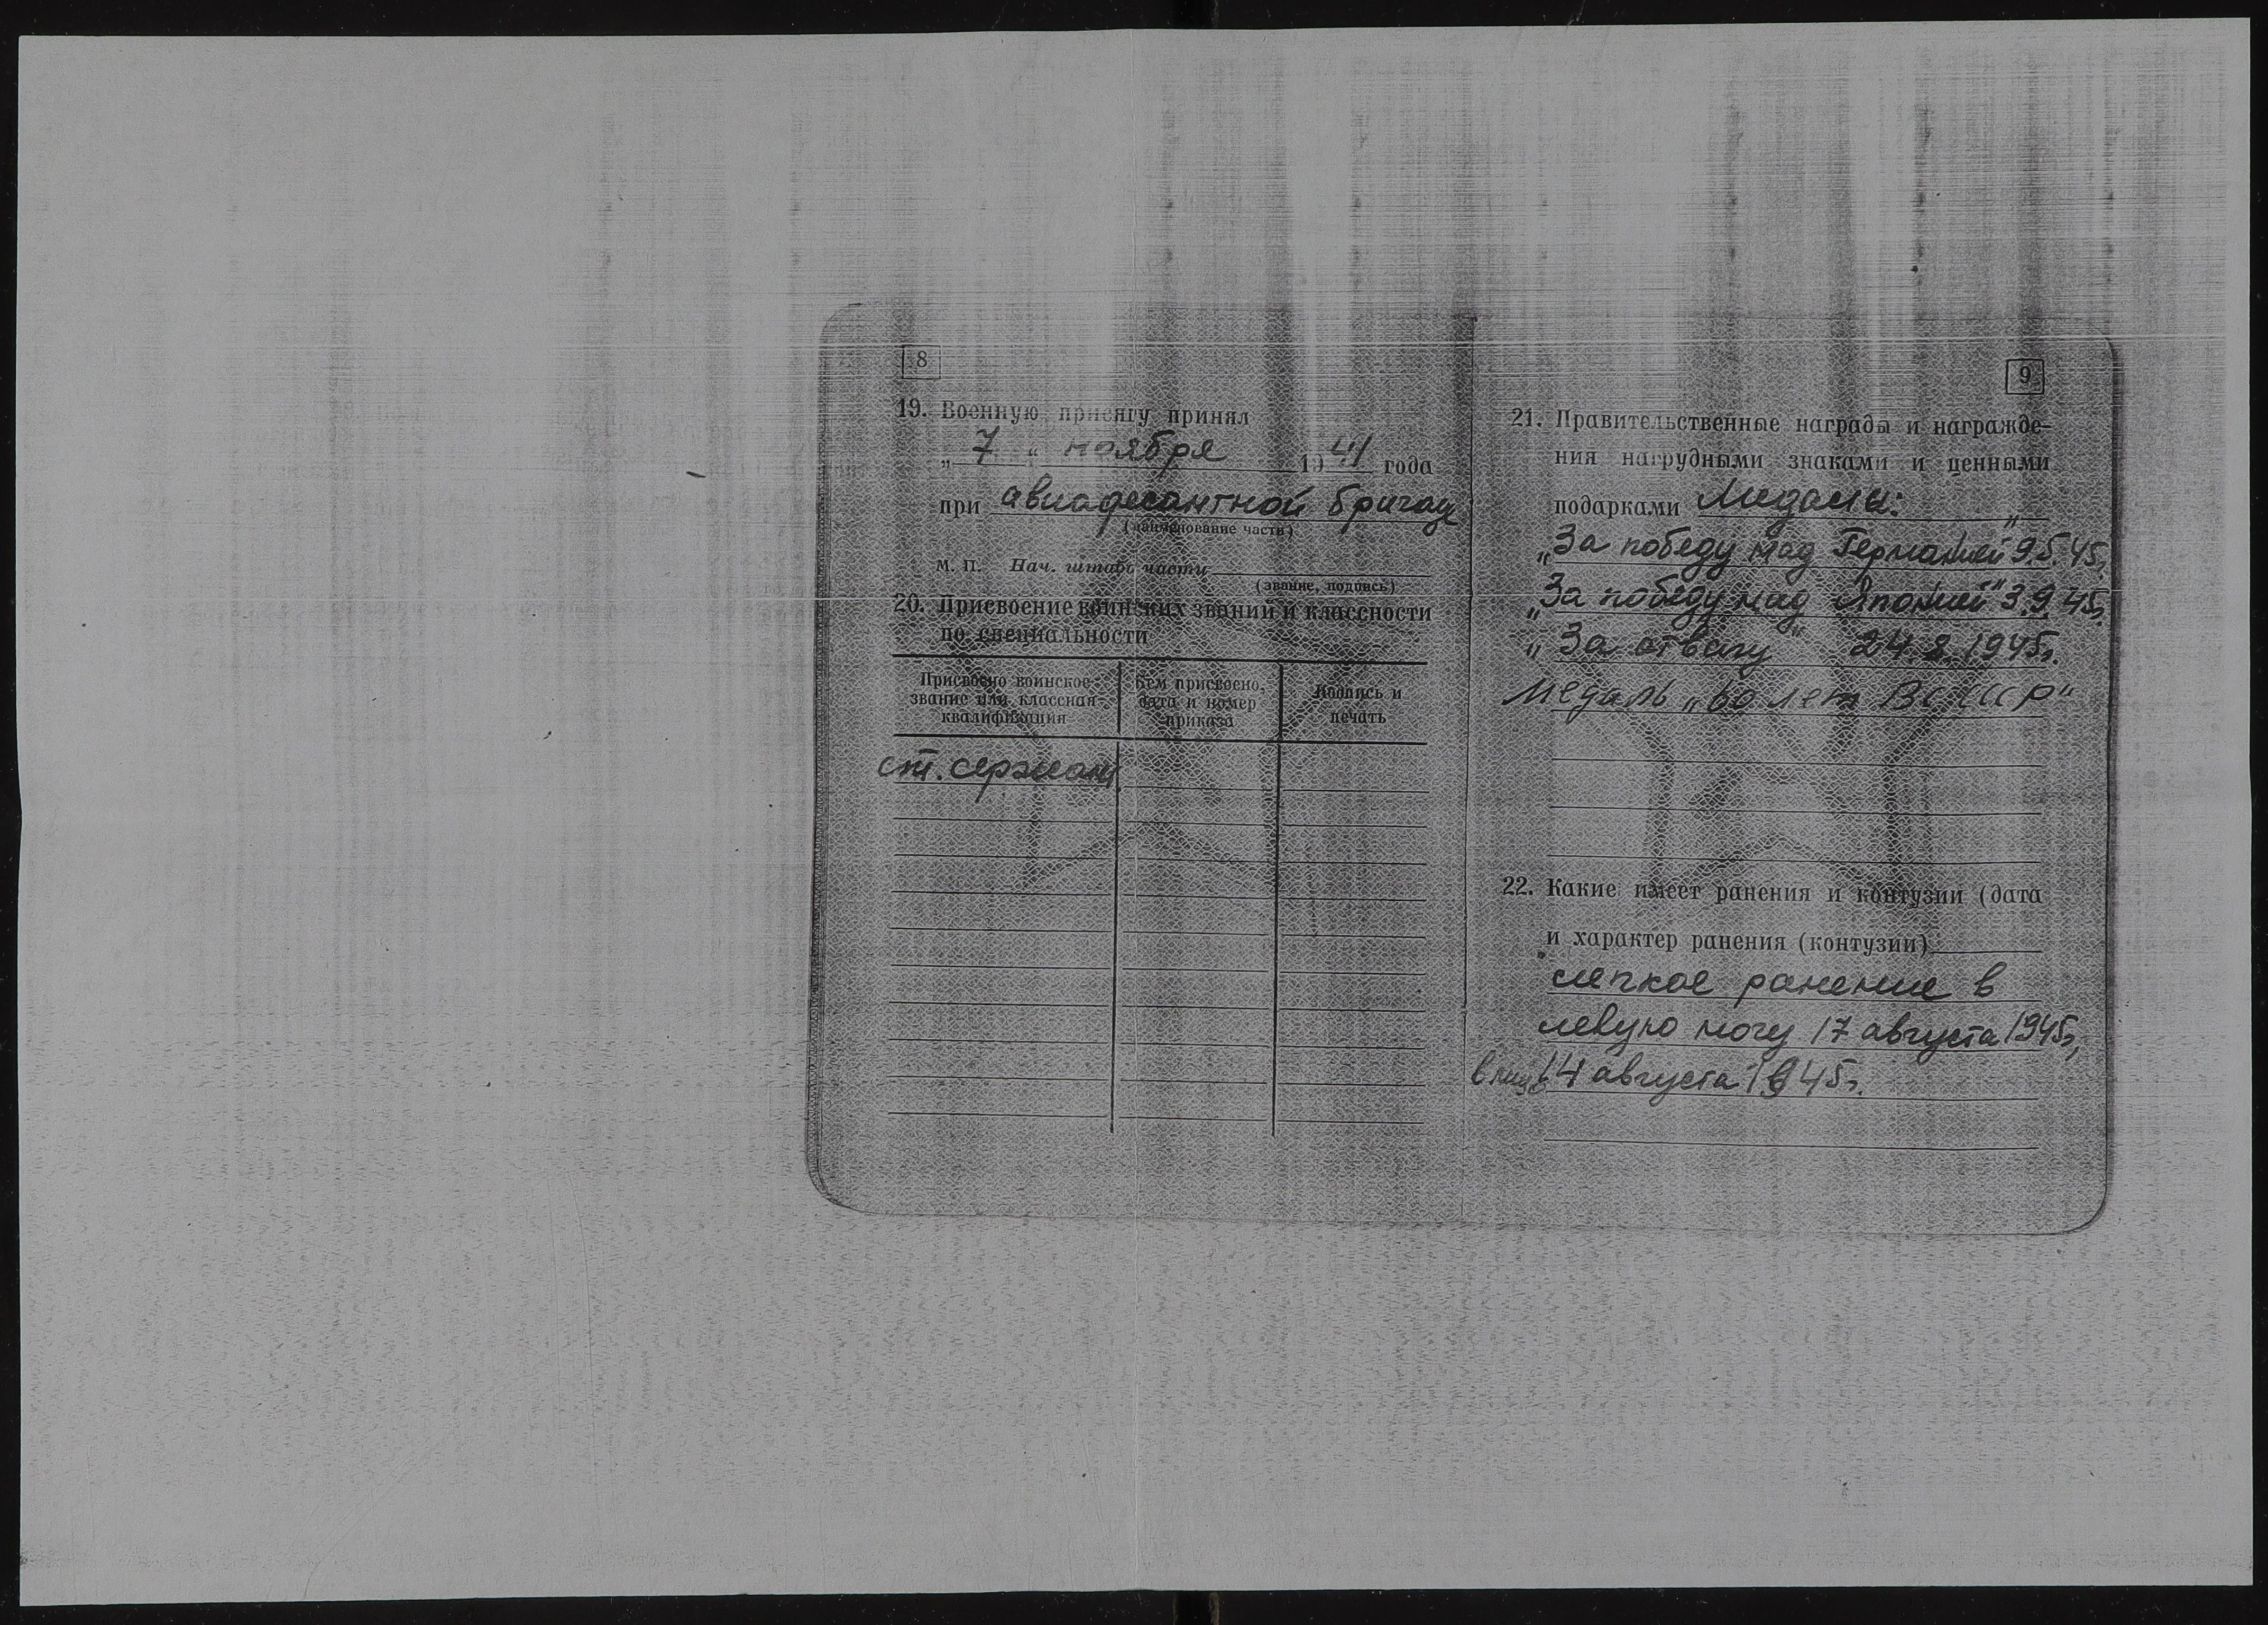 8
19. Военную присягу принял
„ 7 “ ноября 1941 года
при авиадесантной бригад
(наименование части)
М. П. Нач. штаба части
(звание, подпись)
20. Присвоение воинских званий и классности
по специальности
Присвоено воинское звание или классная квалификация
Кем присвоено, дата и номер приказа
Подпись и печать
ст. сержант
9
21. Правительственные награды и награжде-
ния нагрудными знаками и ценными
подарками Медали:
„За победу над Германией" 9.5.45г.
„За победу над Японией" 3.9.45г.
„За отвагу" 24.8.1945г.
Медаль „60 лет ВС СССР"
22. Какие имеет ранения и контузии (дата
и характер ранения (контузии)
легкое ранение в
левую ногу 17 августа 1945г,
14 августа 1945г.